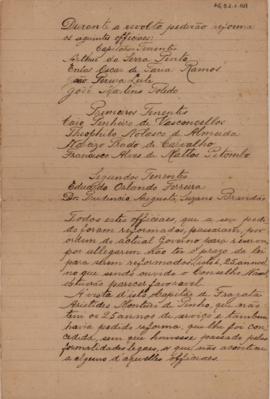 Durante a revolta pedirão reforma
os seguintes officiaes:
Capitães Tenentes
Arthur da Serra Pinto
Enéas Oscar de Faria Ramos
José Martins Toledo
Primeiros Tenentes
Caio Pinheiro de Vasconcellos
Theophilo Nolasco de Almeida
Prado de Carvalho
Francisco Alves de Mattos Pitombo
Segundos Tenentes
Eduardo Orlando Ferreira
Prudencio Augusto Suzano Brandão
Todos estes officiaes, que a seu pedi-
do foram reformados, passaram, por
ordem do actual Governo para a
por allegarem não ter o prazo da lei
para serem reformados, isto é, 25 annos,
no que sendo ouvido o Conselho Naval
deu parecer favoravel.
A vista d'isto o Capitão de Fragata
Aristides Monteiro de Pinho, que não
tem os 25 annos de serviço e tambem
havia pedido reforma, que lhe foi con-
cedida, sem que houvesse passado pelas
formalidades legaes, o que não aconteceu
a alguns d'aquelles officiaes.